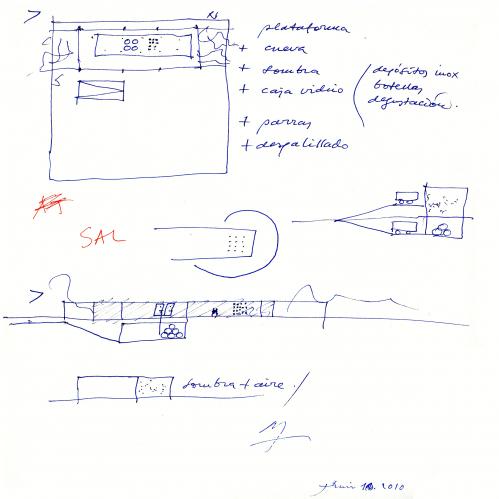 N
plataforma
+ cueva
+ sombra
+ caja vidrio
depósitos inox
botellas
degustación.
+ parras
+ despalillado
S
SAL
sombra + aire.
2010